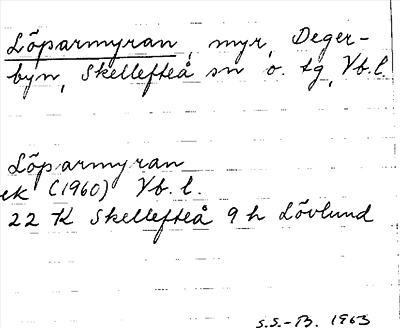 Löparmyran, myr, Deger-
byn, Skellefteå sn o. tg, Vb.l.
Löparmyran
ek (1960) Vb. l.
22 K Skellefteå 9 h Lövlund
S.S.-B. 1963